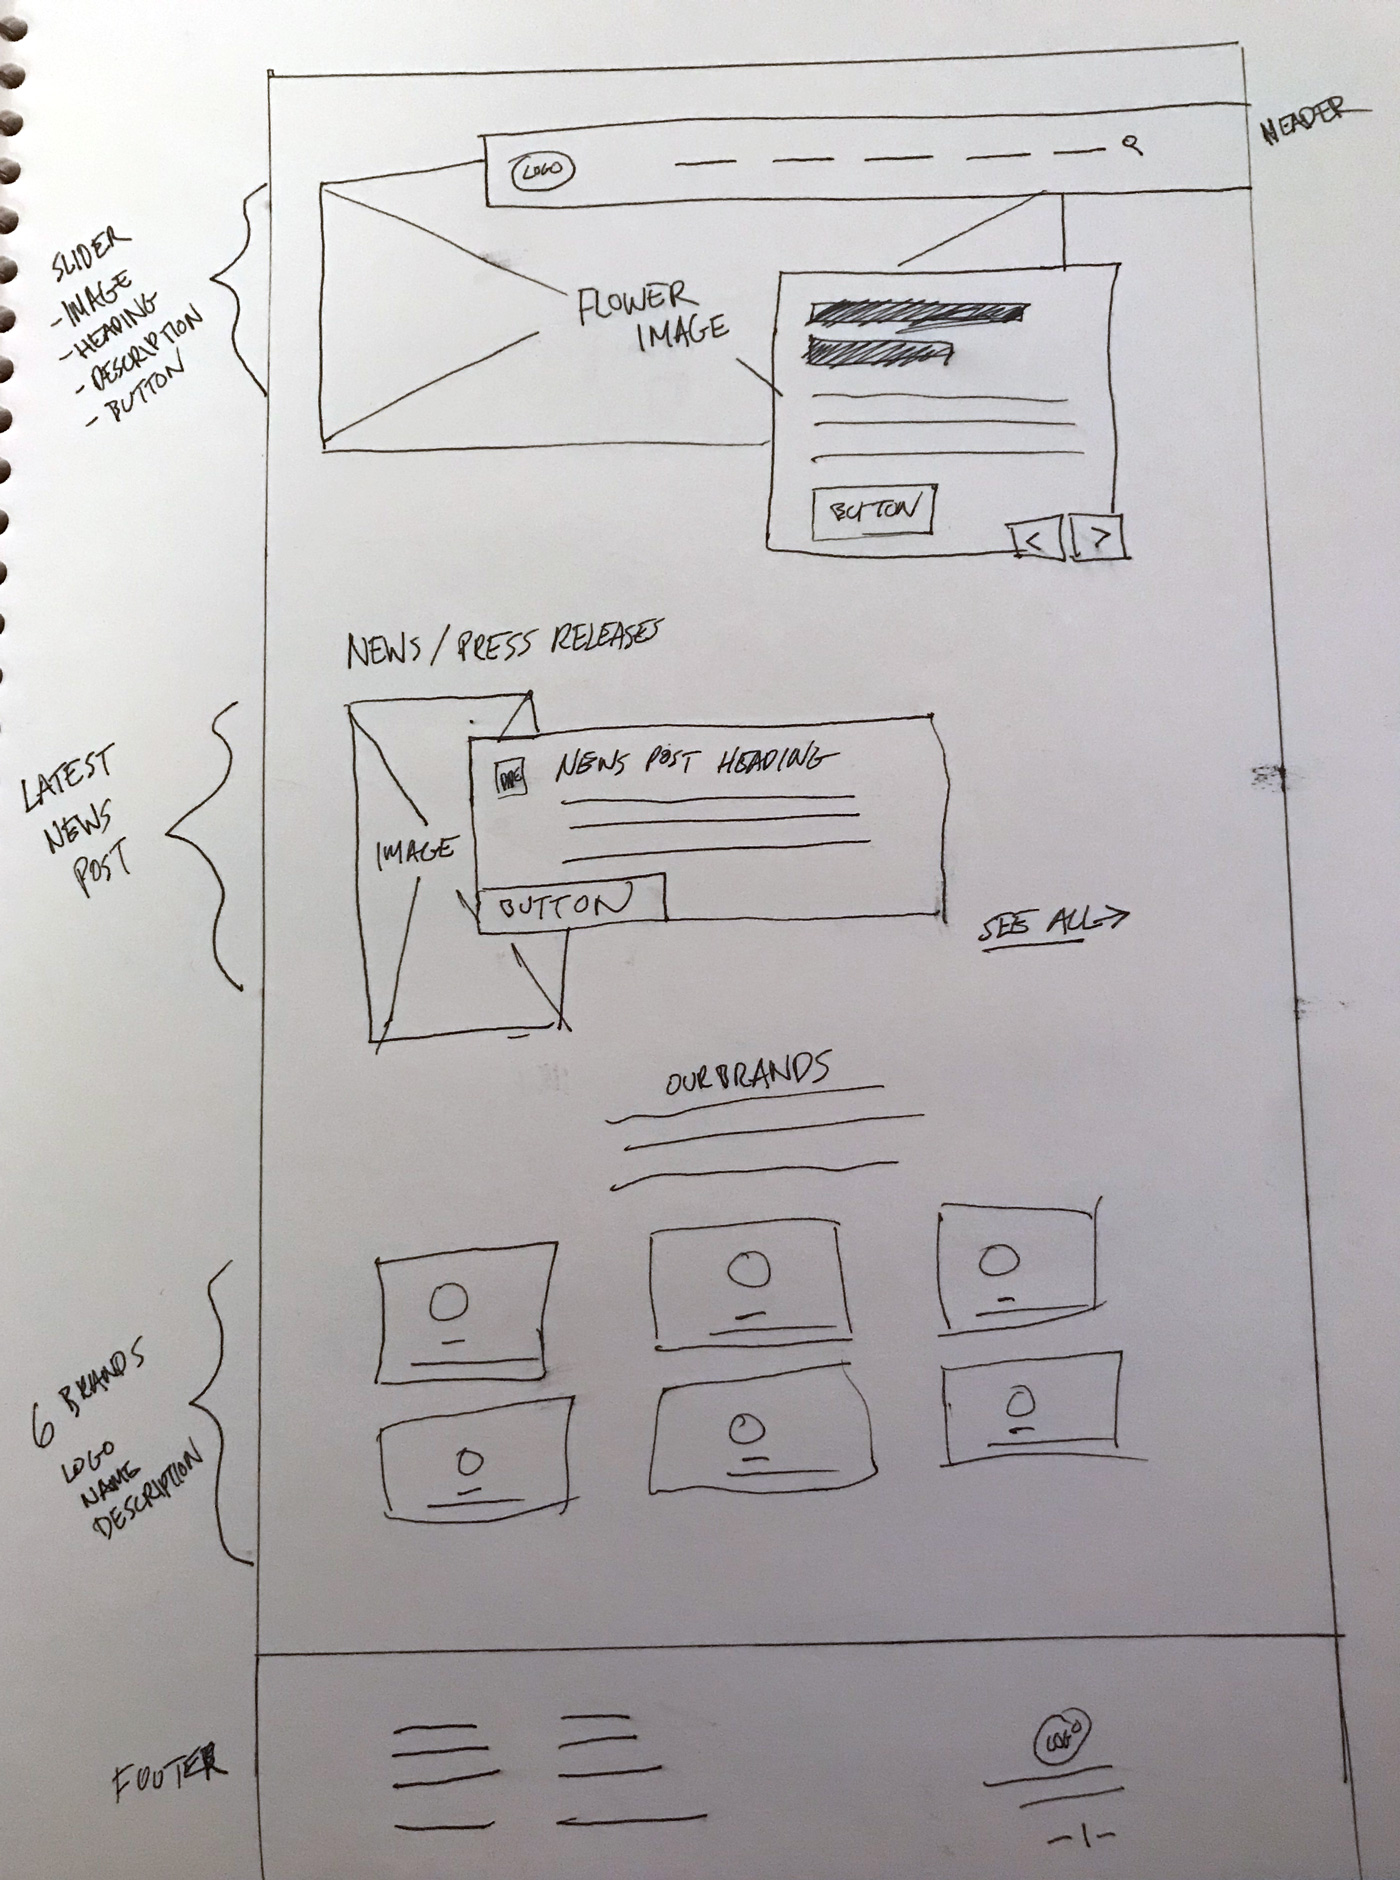 HEADER
LOGO
SLIDER
- IMAGE
- HEADING
- DESCRIPTION
- BUTTON
FLOWER
IMAGE
BUTTON
< >
NEWS / PRESS RELEASES
LATEST
NEWS
POST
NEWS POST HEADING
IMAGE
BUTTON
SEE ALL →
OUR BRANDS
6 BRANDS
LOGO
NAME
DESCRIPTION
FOOTER
LOGO